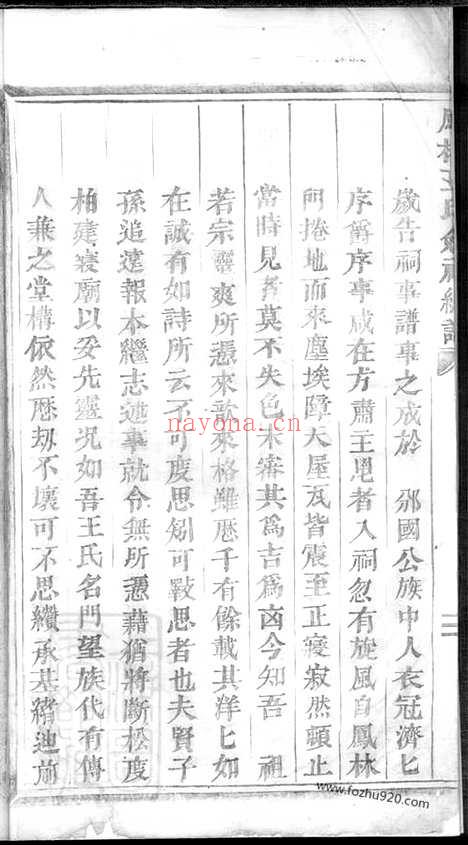 鳳林王氏
歲告祠事譜事之成於　邠國公族中人衣冠濟匕
序爵序事咸在方肅王鬯者入祠忽有旋風自鳳林
門捲地而來塵埃障天屋瓦皆震至正寢寂然頓止
當時見者莫不失色未審其爲吉爲凶今知吾　祖
若宗靈爽所憑來歆來格雖歷千有餘載其洋匕如
在誠有如詩所云不可度思矧可斁思者也夫賢子
孫追遠報本繼志述事就令無所憑藉猶將斷松度
柏建寢廟以妥先靈况如吾王氏名門望族代有傳
人兼之堂構依然歴刼不壞可不思纘承基緒迪前
nayona.cn
www.fozhu920.com